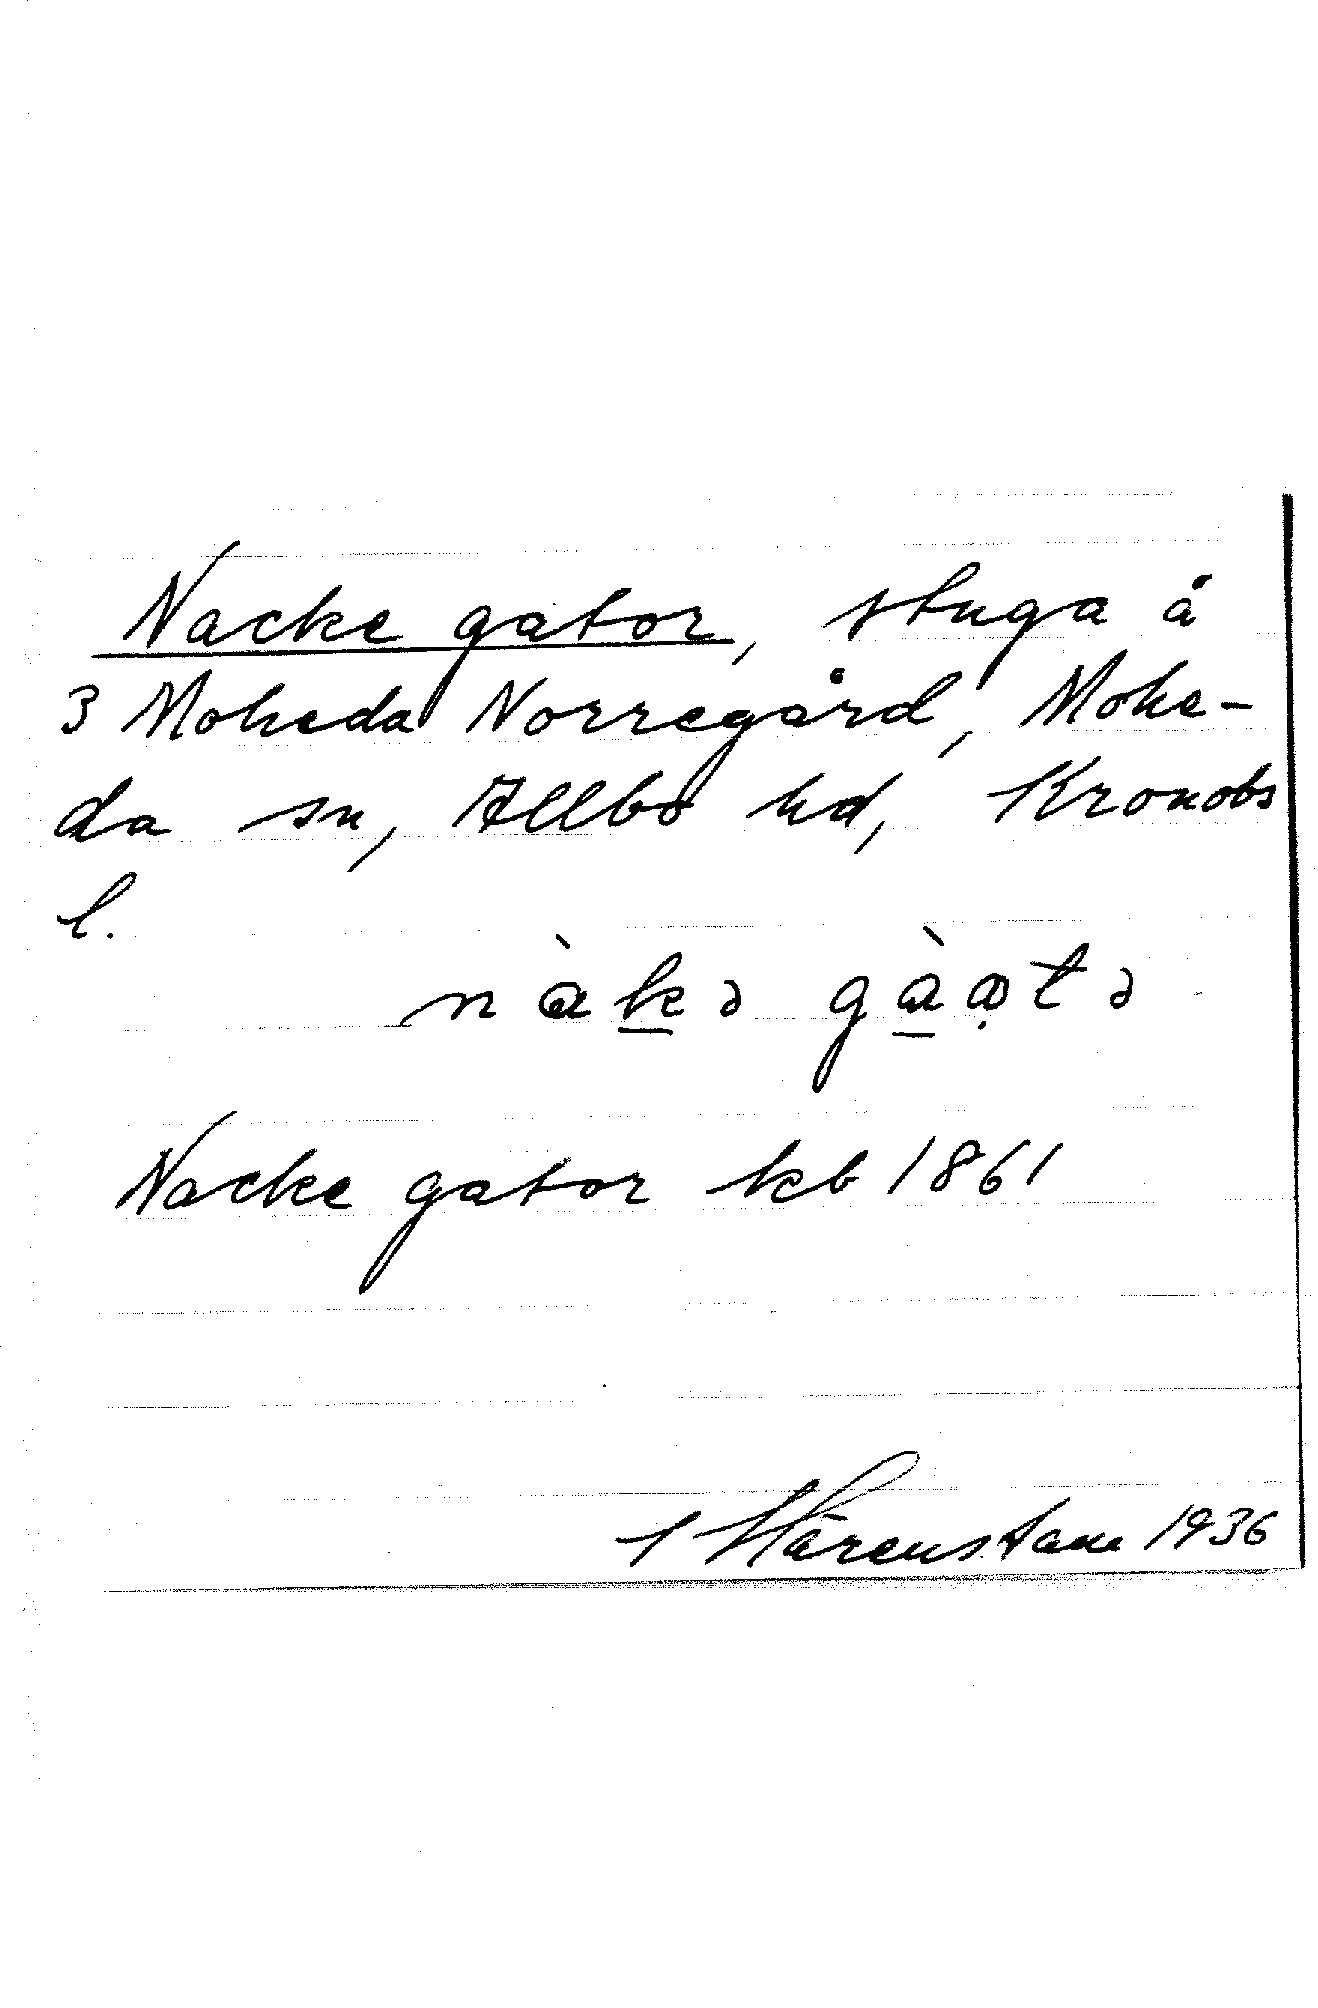 Nacke gator, stuga å
3 Moheda Norregård, Mohe-
da sn, Allbo hd, Kronobs
l.
nàkə gàatə
Nacke gator kb 1861
1936